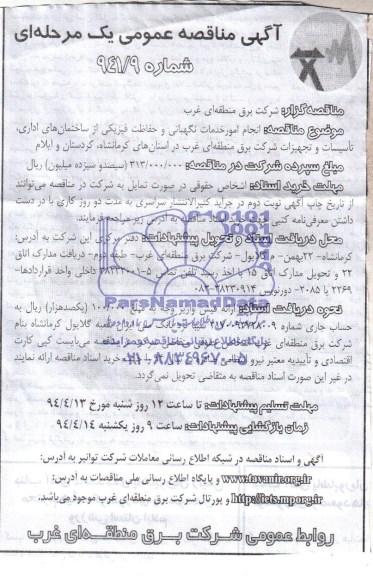 آگهی مناقصه عمومی یک مرحله‌ای
شماره ۹۴۱/۹
مناقصه‌گزار: شرکت برق منطقه‌ای غرب
موضوع مناقصه: انجام امور خدمات نگهبانی و حفاظت فیزیکی از ساختمان‌های اداری،
تأسیسات و تجهیزات شرکت برق منطقه‌ای غرب در استان‌های کرمانشاه، کردستان و ایلام
مبلغ سپرده شرکت در مناقصه: ۳۱۳/۰۰۰/۰۰۰ (سیصد و سیزده میلیون) ریال
مهلت خرید اسناد: اشخاص حقوقی در صورت تمایل به شرکت در مناقصه می‌توانند
از تاریخ چاپ آگهی نوبت دوم در جراید کثیرالانتشار سراسری به مدت دو روز کاری با در دست
داشتن معرفی‌نامه کتبی اسناد مناقصه به آدرس زیر مراجعه فرمایند.
محل دریافت اسناد و تحویل پیشنهادات: دفتر مرکزی این شرکت به آدرس:
کرمانشاه- ۲۲بهمن- کلابپول- شرکت برق منطقه‌ای غرب- طبقه دوم- دریافت مدارک اتاق
۲۲ و تحویل مدارک اتاق تلفن تماس داخلی واحد قراردادها-
۲۲۶۹ یا ۲۰۸۵- دورنویس ۳۸۲۳۰۹۱۲-۰۸۳
نحوه دریافت اسناد: ارائه فیش واریز وجه ۱۰۰/۰۰۰ (یکصدهزار) ریال به
حساب جاری شماره شعبه گلابپول کرمانشاه بنام
شرکت برق منطقه‌ای غرب می‌بایست کپی کارت
اقتصادی و تأییدیه معتبر خرید اسناد مناقصه ارائه نمایند
در غیر این صورت اسناد مناقصه به متقاضی تحویل نمی‌گردد.
مهلت تسلیم پیشنهادات: تا ساعت ۱۲ روز شنبه مورخ ۹۴/۴/۱۳
زمان بازگشایی پیشنهادات: ساعت ۹ روز یکشنبه ۹۴/۴/۱۴
آگهی و اسناد مناقصه در شبکه اطلاع رسانی معاملات شرکت توانیر به آدرس:
www.tavanir.org.ir و پایگاه اطلاع رسانی ملی مناقصات به آدرس:
http://iets.mporg.ir و پورتال شرکت برق منطقه‌ای غرب موجود می‌باشد.
روابط عمومی شرکت برق منطقه‌ای غرب
ParsNamadData
پایگاه اطلاع رسانی
۰۲۱-۸۸۳۴۹۶۷۰-۵